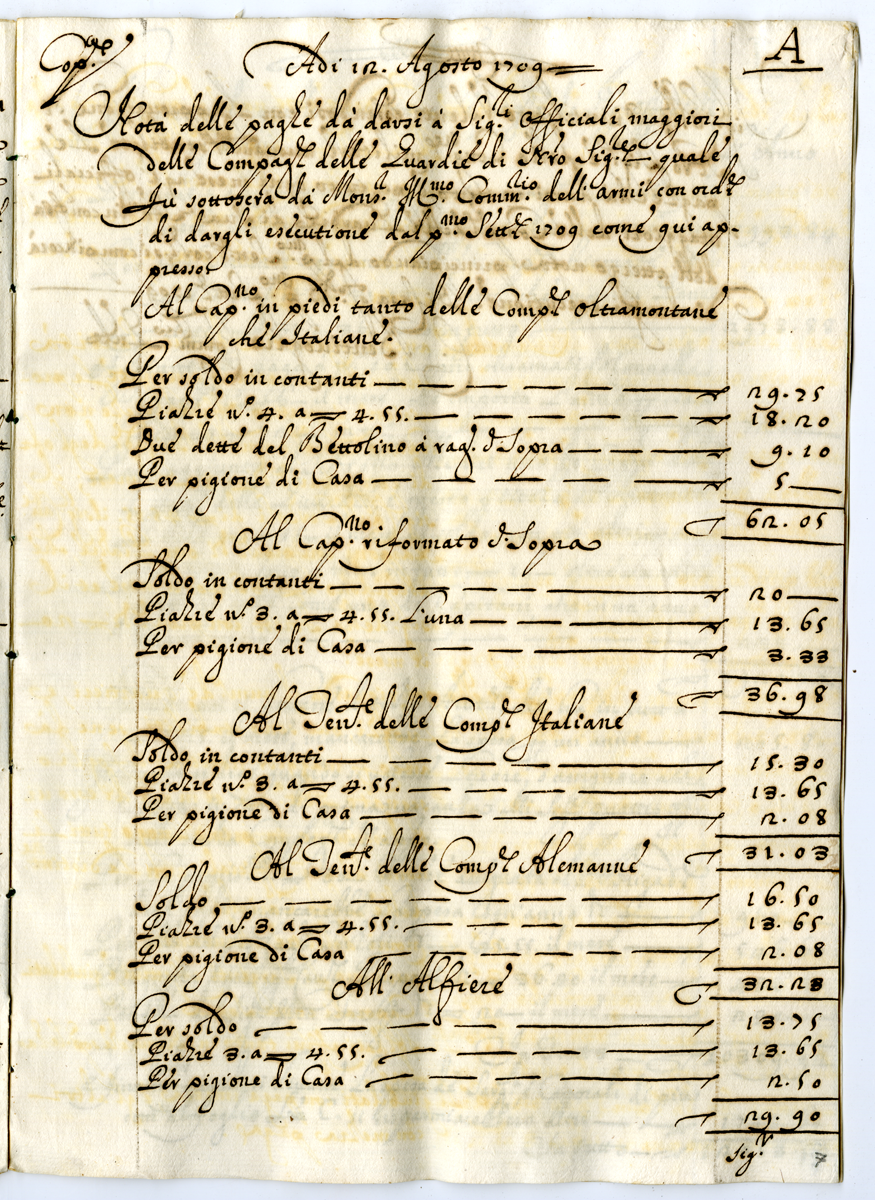 A
Cop.ᵃ
Adi 12. Agosto 1709
Nota delle paghe da darsi a Sig.ri Officiali maggiori
delle Compag.e delle Guardie di N'ro Sig.re quale
fù sottoscra da Mons.r Ill'mo Comm.rio dell'armi con ord.e
di dargli esecutione dal p.mo Sett.e 1709 come qui ap-
presso.
Al Cap.no in piedi tanto delle Comp.e oltramontane
che Italiane.
Per soldo in contanti 29.75
Piazze n.o 4. a 4.55. 18.20
Due dette del Bettolino à rag.e d.Sopra 9.10
Per pigione di Casa 5
62.05
Al Cap.no riformato d.Sopra
Soldo in contanti 20
Piazze n.o 3. a 4.55. l'una 13.65
Per pigione di Casa 3.33
36.98
Al Ten.te delle Comp.e Italiane
Soldo in contanti 15.30
Piazze n.o 3. a 4.55. 13.65
Per pigione di Casa 2.08
31.03
Al Ten.te delle Comp.e Alemanne
Soldo 16.50
Piazze n.o 3. a 4.55. 13.65
Per pigione di Casa 2.08
32.23
All'Alfiere
Per soldo 13.75
Piazze 3. a 4.55. 13.65
Per pigione di Casa 2.50
29.90
sig.r
7